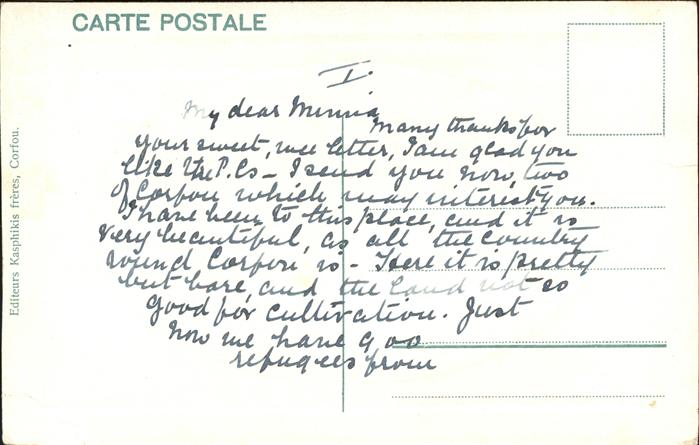 CARTE POSTALE
I.
My dear Minnie
Many thanks for
your sweet, wee letter, I am glad you
like the P.Cs - I send you now, two
of Corfou which may interest you.
I have been to this place, and it is
very beautiful, as all the country
round Corfou is - Here it is pretty
but bare, and the land not so
good for cultivation. Just
now we have 900
refugees from
Editeurs Kasphikis frères, Corfou.